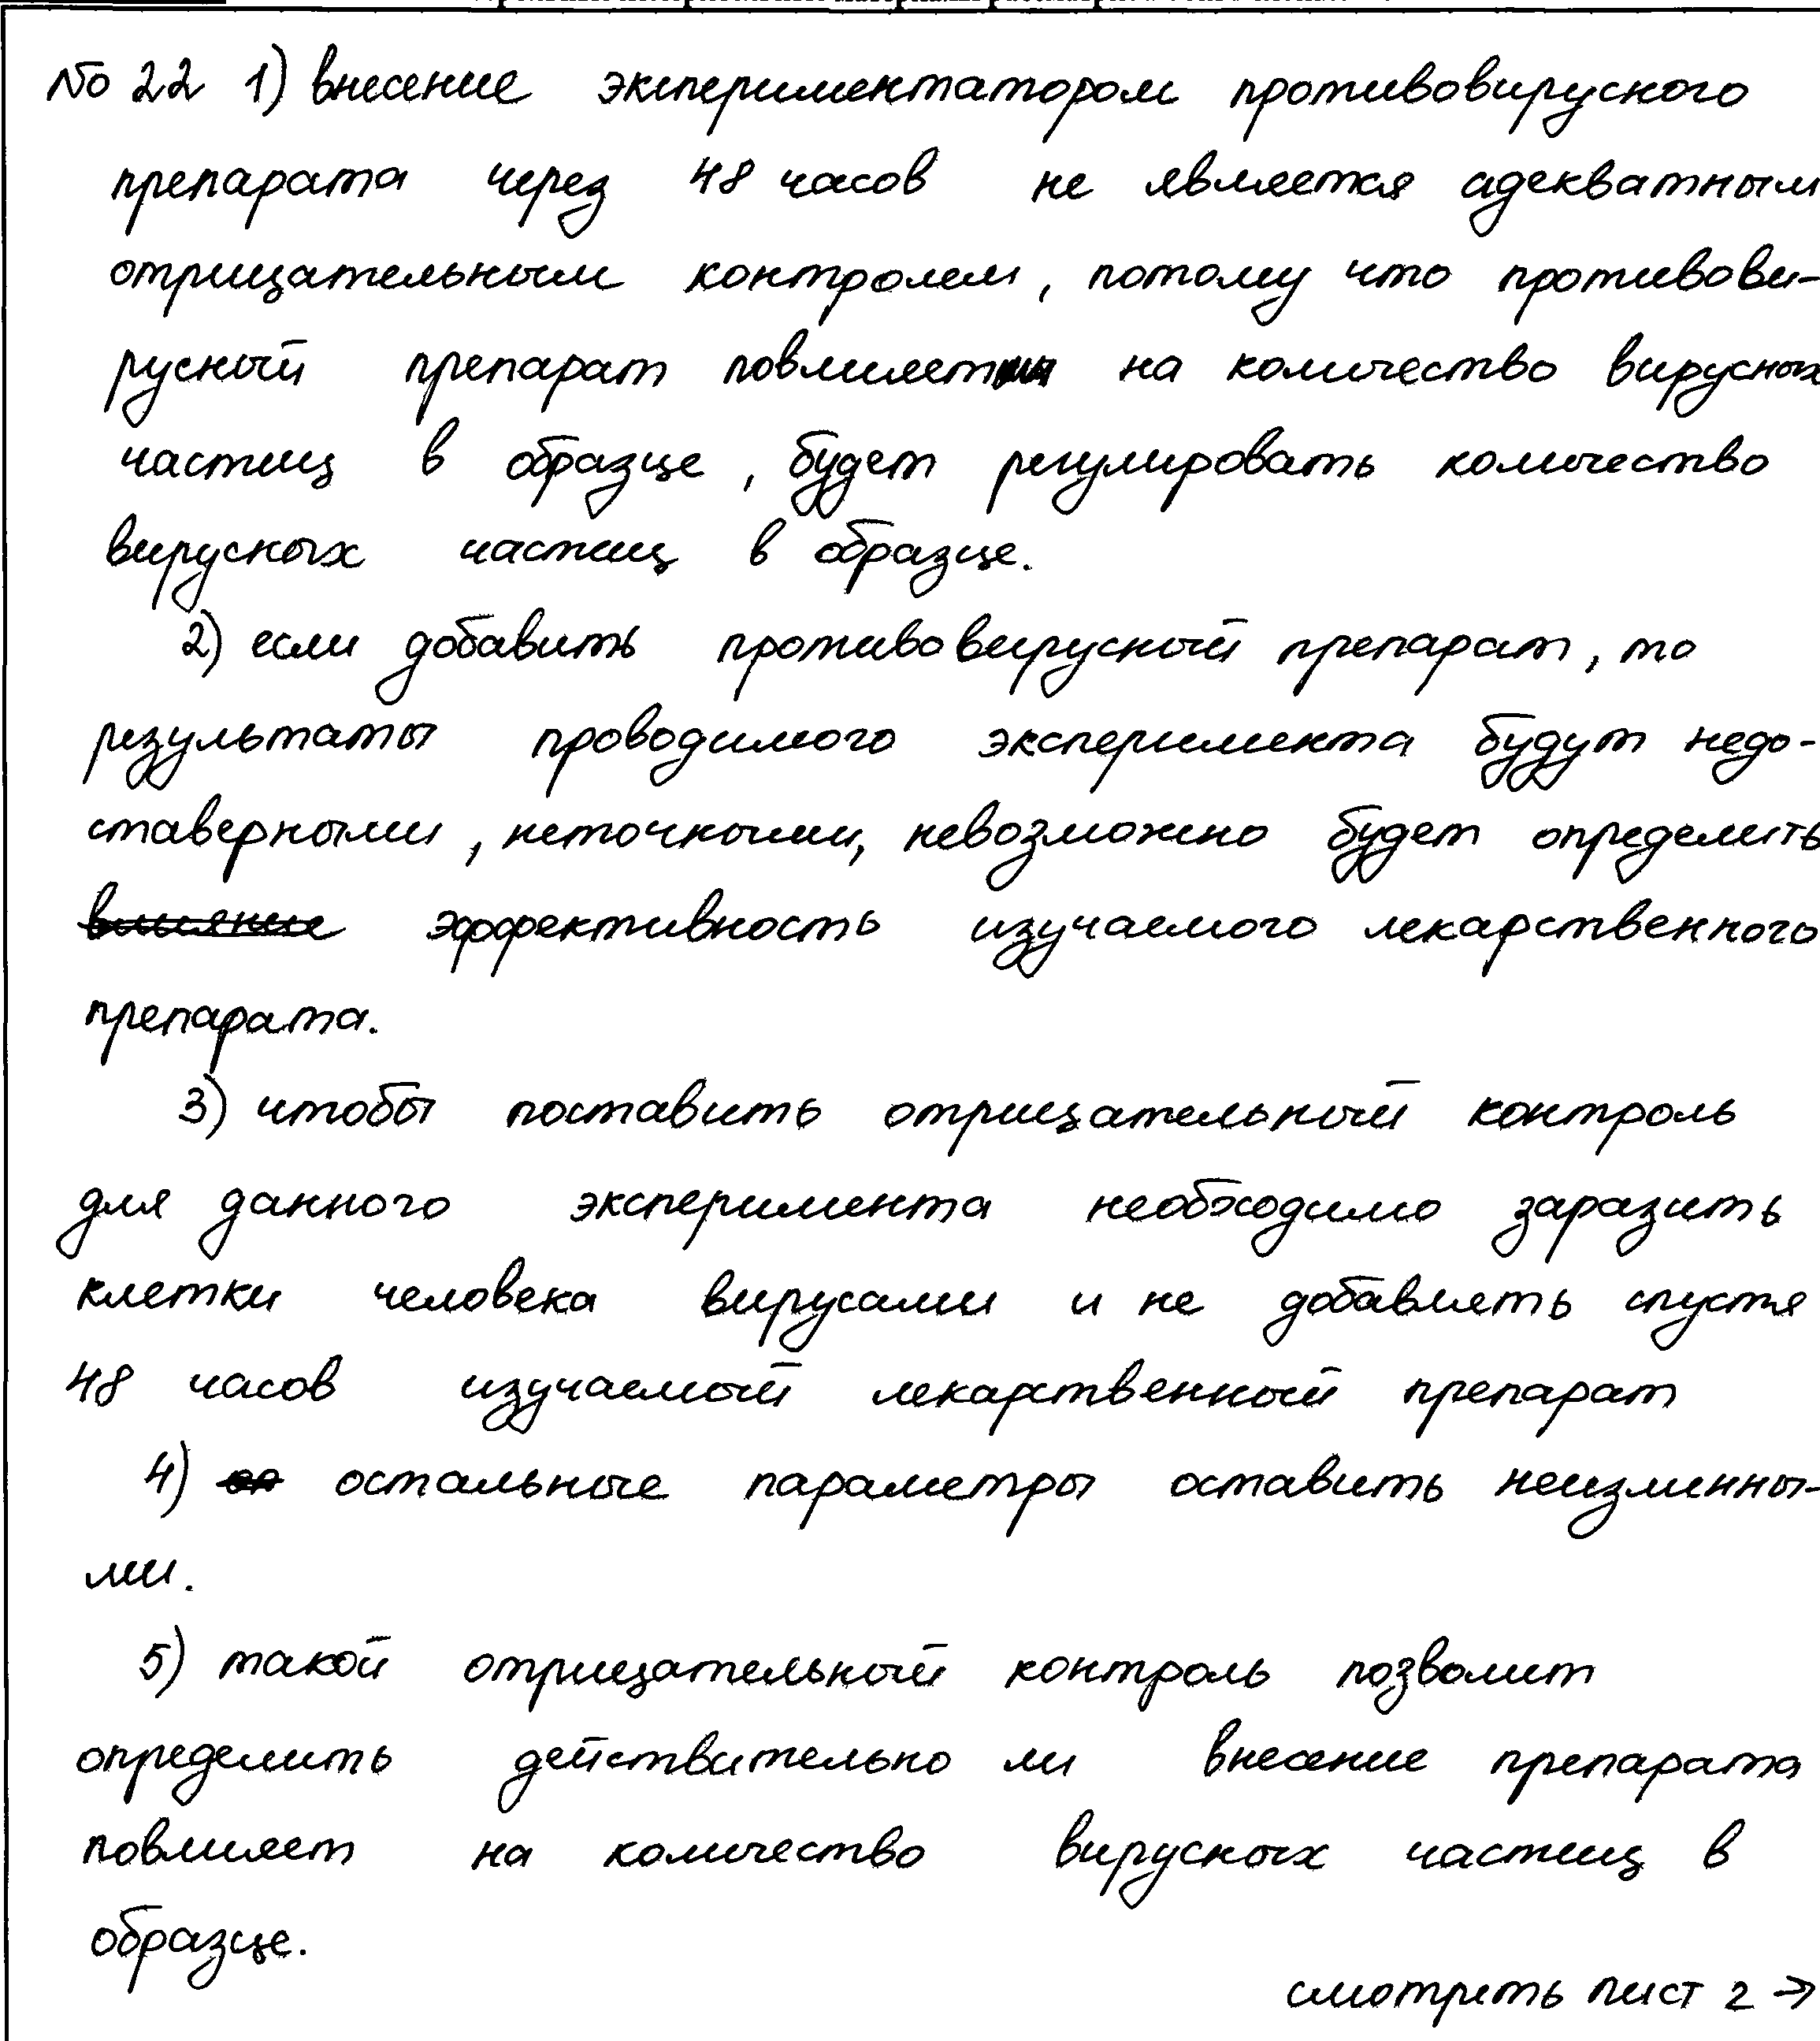 No 22 1) внесение экспериментатором противовирусного
препарата через 48 часов не является адекватным
отрицательным контролем, потому что противови-
русный препарат повлияет на количество вирусных
частиц в образце, будет регулировать количество
вирусных частиц в образце.
2) если добавить противовирусный препарат, то
результаты проводимого эксперимента будут недо-
ставерными, неточными, невозможно будет определить
эффективность изучаемого лекарственного
препарата.
3) чтобы поставить отрицательный контроль
для данного эксперимента необходимо заразить
клетки человека вирусами и не добавлять спустя
48 часов изучаемый лекарственный препарат
4) остальные параметры оставить неизменны-
ми.
5) такой отрицательный контроль позволит
определить действительно ли внесение препарата
повлияет на количество вирусных частиц в
образце.
смотреть лист 2 →